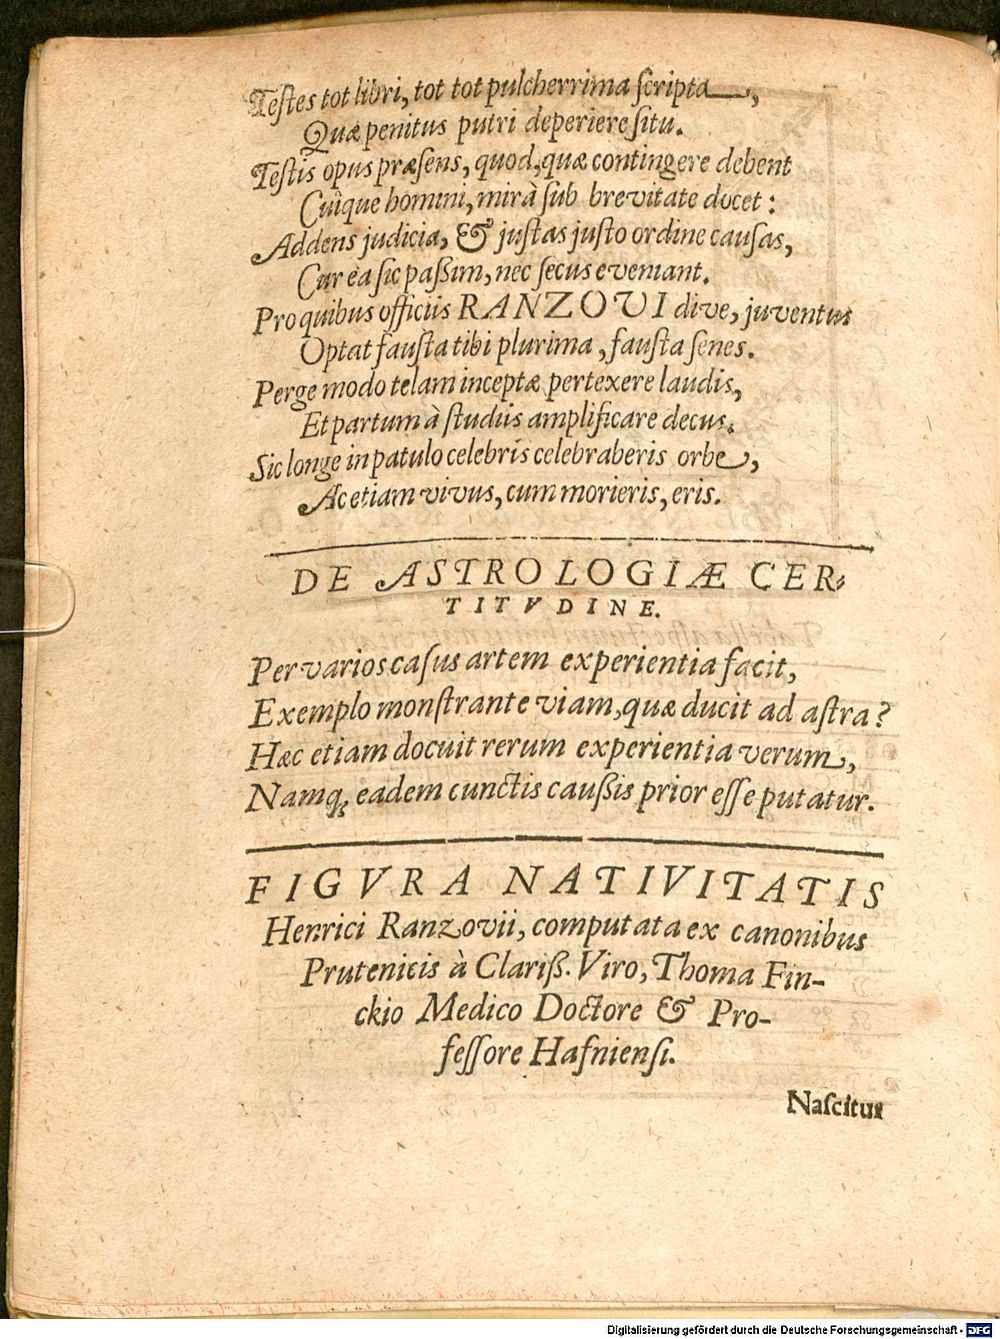 Testes tot libri, tot tot pulcherrima scripta,
Quæ penitus putri deperiere situ.
Testis opus præsens, quod, quæ contingere debent
Cuique homini, mirà sub brevitate docet:
Addens judicia, & justas justo ordine causas,
Cur ea sic paßim, nec secus eveniant.
Pro quibus officiis RANZOVI dive, juventus
Optat fausta tibi plurima, fausta senes.
Perge modo telam inceptæ pertexere laudis,
Et partum à studiis amplificare decus.
Sic longe in patulo celebris celebraberis orbe,
Ac etiam vivus, cum morieris, eris.
DE ASTROLOGIÆ CER-
TITVDINE.
Per varios casus artem experientia facit,
Exemplo monstrante viam, quæ ducit ad astra?
Hæc etiam docuit rerum experientia verum,
Namq; eadem cunctis caußis prior esse putatur.
FIGVRA NATIVITATIS
Henrici Ranzovii, computata ex canonibus
Prutenicis à Clariß. Viro, Thoma Fin-
ckio Medico Doctore & Pro-
fessore Hafniensi.
Nascitur
Digitalisierung gefördert durch die Deutsche Forschungsgemeinschaft - DFG